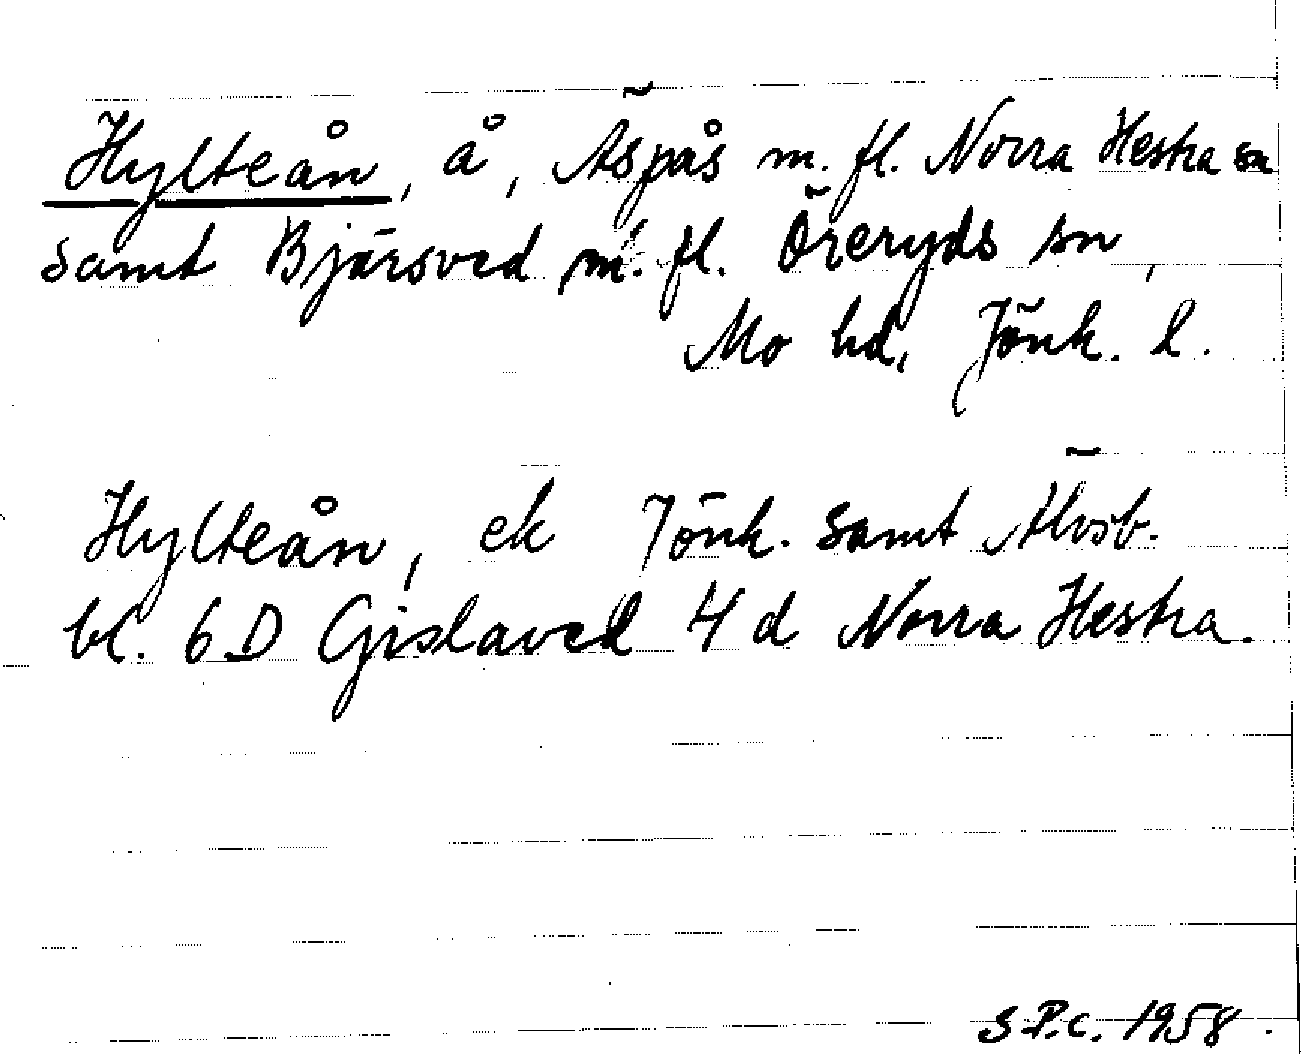 Hylteån, å, Äspås m. fl. Norra Hestra sn
samt Bjärsved m. fl. Öreryds sn,
Mo hd, Jönk. l.
Hylteån, ek Jönk. samt Älvsb.
bl. 6D Gislaved 4 d Norra Hestra.
S.P.c. 1958.